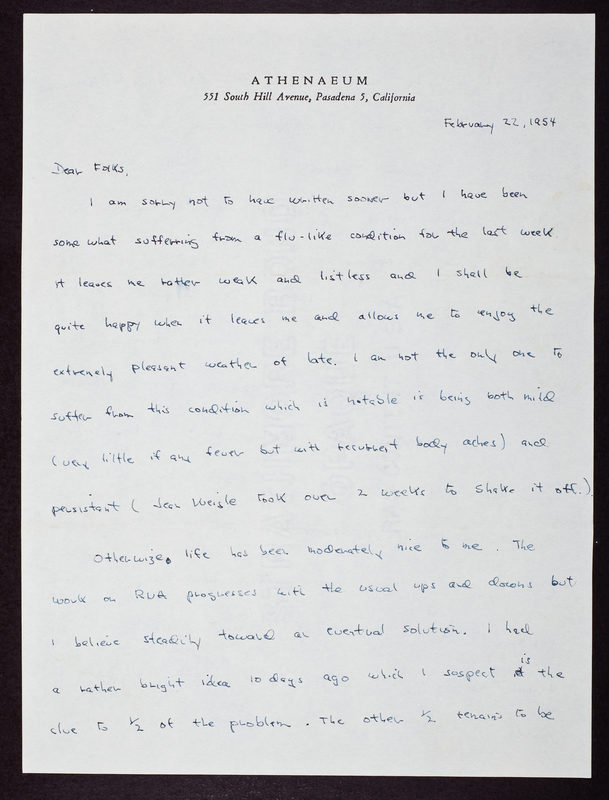 ATHENAEUM
551 South Hill Avenue, Pasadena 5, California
February 22, 1954
Dear Folks,
I am sorry not to have written sooner but I have been
somewhat suffering from a flu-like condition for the last week.
it leaves me rather weak and listless and I shall be
quite happy when it leaves me and allows me to enjoy the
extremely pleasant weather of late. I am not the only one to
suffer from this condition which is notable is being both mild
(very little if any fever but with recurrent body aches) and
persistant (Jean Weigle took over 2 weeks to shake it off.)
Otherwize, life has been moderately nice to me. The
work on RNA progresses with the usual ups and downs but
I believe steadily toward an eventual solution. I had
a rather bright idea 10 days ago which I suspect is the
clue to 1/2 of the problem. The other 1/2 remains to be